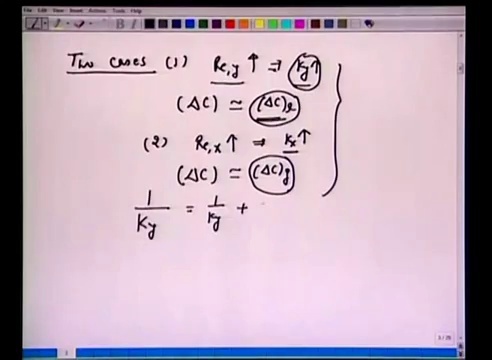 File Edit View Insert Actions Tools Help
Two cases (1) Re,y ↑ ⇒ ky↑
(ΔC) ≃ (ΔC)x
(2) Re,x ↑ ⇒ kx↑
(ΔC) ≃ (ΔC)y
1/Ky = 1/ky +